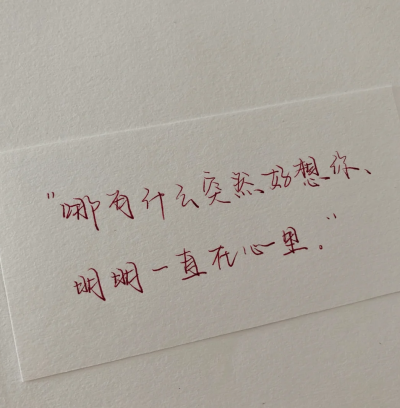 "哪有什么突然好想你、
明明一直在心里。"